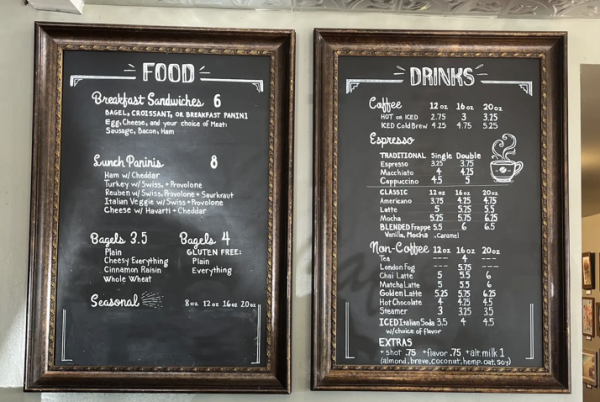 FOOD
Breakfast Sandwiches 6
BAGEL, CROISSANT, OR BREAKFAST PANINI
Egg, Cheese, and your choice of Meat:
Sausage, Bacon, Ham
Lunch Paninis 8
Ham w/ Cheddar
Turkey w/ Swiss, + Provolone
Reuben w/ Swiss, Provolone + Saurkraut
Italian Veggie w/ Swiss + Provolone
Cheese w/ Havarti + Cheddar
Bagels 3.5
Plain
Cheesy Everything
Cinnamon Raisin
Whole Wheat
Bagels 4
GLUTEN FREE:
Plain
Everything
Seasonal 8oz 12oz 16oz 20oz
DRINKS
Coffee 12oz 16oz 20oz
HOT or ICED 2.75 3 3.25
ICED Cold Brew 4.25 4.75 5.25
Espresso
TRADITIONAL Single Double
Espresso 3.25 3.75
Macchiato 4 4.75
Cappuccino 4.5 5
CLASSIC 12oz 16oz 20oz
Americano 3.75 4.25 4.75
Latte 5 5.25 5.5
Mocha 5.75 5.75 6.25
BLENDED Frappe 5.5 6 6.5
Vanilla, Mocha, Caramel
Non-Coffee 12oz 16oz 20oz
Tea --- 4 ---
London Fog --- 5.75 ---
Chai Latte 5 5.5 6
Matcha Latte 5 5.5 6
Golden Latte 5.25 5.75 6.25
Hot Chocolate 4 4.25 4.5
Steamer 3 3.25 3.5
ICED Italian Soda 3.5 4 4.5
w/ choice of flavor
EXTRAS
+ shot .75 + flavor .75 + alt milk 1
(almond, breve, coconut, hemp, oat, soy)